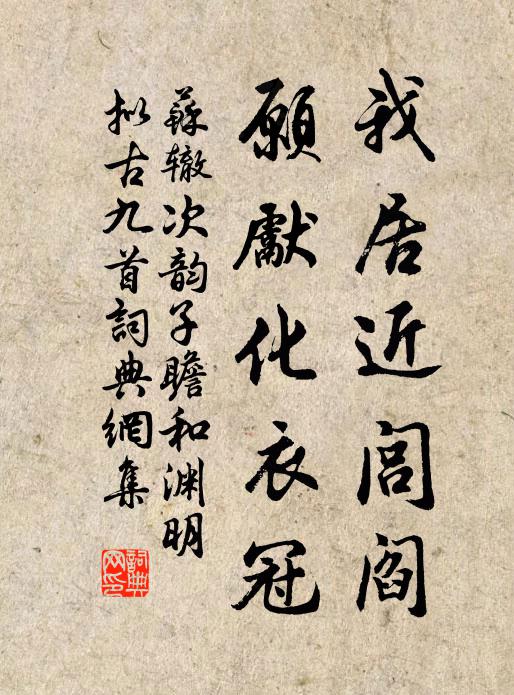 我居近閭閻
願獻化衣冠
蘇辙次韵子瞻和渊明
拟古九首詞典網集
詞典网印